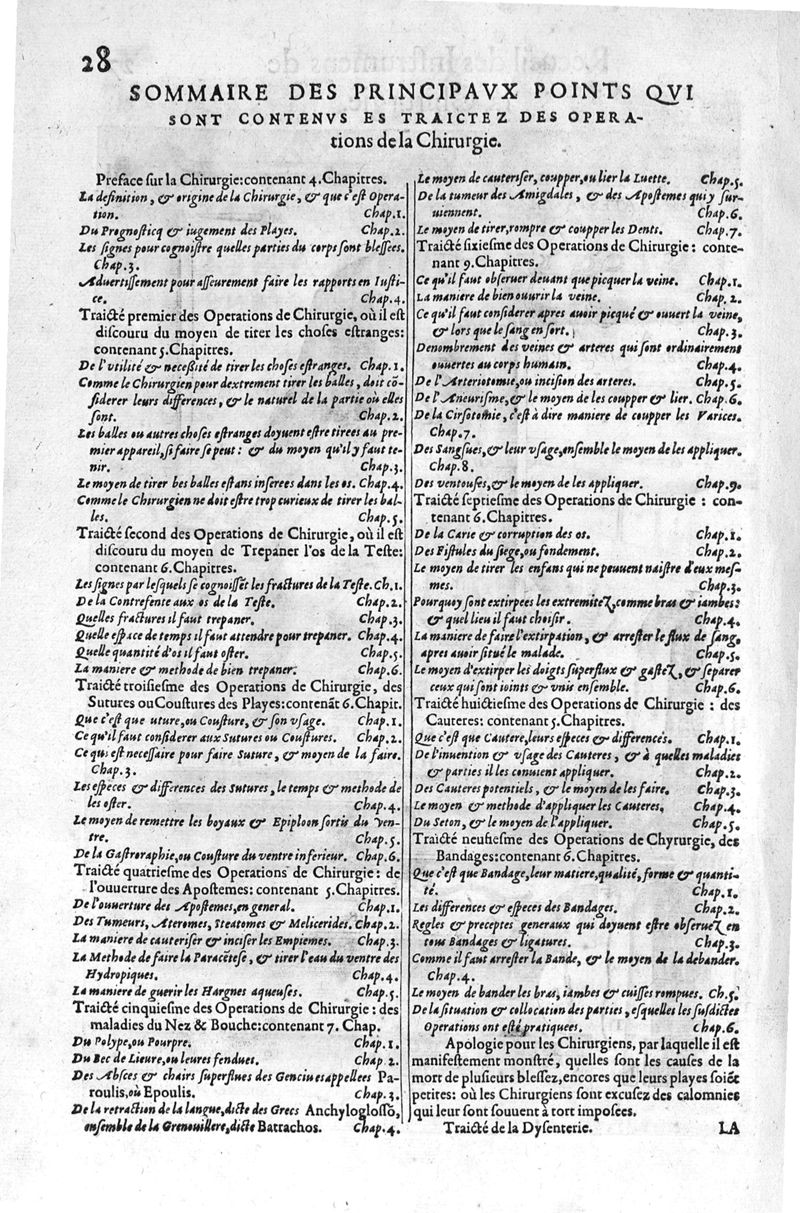 28
SOMMAIRE DES PRINCIPAVX POINTS QVI
SONT CONTENVS ES TRAICTEZ DES OPERA-
tions de la Chirurgie.
Preface sur la Chirurgie: contenant 4. Chapitres.
La definition, & origine de la Chirurgie, & que c'est Opera-
tion. Chap. 1.
Du Prognosticq & iugement des Playes. Chap. 2.
Les signes pour cognoistre quelles parties du corps sont blessees.
Chap. 3.
Aduertissement pour asseurement faire les rapports en Iusti-
ce. Chap. 4.
Traicté premier des Operations de Chirurgie, où il est
discouru du moyen de tirer les choses estranges:
contenant 5. Chapitres.
De l'vtilité & necessité de tirer les choses estranges. Chap. 1.
Comme le Chirurgien pour dextrement tirer les balles, doit cõ-
siderer leurs differences, & le naturel de la partie où elles
sont. Chap. 2.
Les balles ou autres choses estranges doyuent estre tirees au pre-
mier appareil, si faire se peut: & du moyen qu'il y faut te-
nir. Chap. 3.
Le moyen de tirer bes balles estans inserees dans les os. Chap. 4.
Comme le Chirurgien ne doit estre trop curieux de tirer les bal-
les. Chap. 5.
Traicté second des Operations de Chirurgie, où il est
discouru du moyen de Trepaner l'os de la Teste:
contenant 6. Chapitres.
Les signes par lesquels se cognoissẽt les fractures de la Teste. Ch. 1.
De la Contrefente aux os de la Teste. Chap. 2.
Quelles fractures il faut trepaner. Chap. 3.
Quelle espace de temps il faut attendre pour trepaner. Chap. 4.
Quelle quantité d'os il faut oster. Chap. 5.
La maniere & methode de bien trepaner. Chap. 6.
Traicté troisiesme des Operations de Chirurgie, des
Sutures ou Coustures des Playes: contenãt 6. Chapit.
Que c'est que uture, ou Cousture, & son vsage. Chap. 1.
Ce qu'il faut considerer aux Sutures ou Coustures. Chap. 2.
Ce qui est necessaire pour faire Suture, & moyen de la faire.
Chap. 3.
Les especes & differences des Sutures, le temps & methode de
les oster. Chap. 4.
Le moyen de remettre les boyaux & Epiploon sortis du Ven-
tre. Chap. 5.
De la Gastroraphie, ou Cousture du ventre inferieur. Chap. 6.
Traicté quatriesme des Operations de Chirurgie: de
l'ouuerture des Apostemes: contenant 5. Chapitres.
De l'ouuerture des Apostemes, en general. Chap. 1.
Des Tumeurs, Ateromes, Steatomes & Melicerides. Chap. 2.
La maniere de cauteriser & inciser les Empiemes. Chap. 3.
La Methode de faire la Paracẽtese, & tirer l'eau du ventre des
Hydropiques. Chap. 4.
La maniere de guerir les Hargnes aqueuses. Chap. 5.
Traicté cinquiesme des Operations de Chirurgie: des
maladies du Nez & Bouche: contenant 7. Chap.
Du Polype, ou Pourpre. Chap. 1.
Du Bec de Lieure, ou leures fendues. Chap. 2.
Des Absces & chairs superflues des Genciues appellees Pa-
roulis, ou Epoulis. Chap. 3.
De la retraction de la langue, dicte des Grecs Anchyglossõ,
ensemble de la Grenouillere, dicte Batrachos. Chap. 4.
Le moyen de cauteriser, coupper, ou lier la Luette. Chap. 5.
De la tumeur des Amigdales, & des Apostemes qui y sur-
uiennent. Chap. 6.
Le moyen de tirer, rompre & coupper les Dents. Chap. 7.
Traicté sixiesme des Operations de Chirurgie: conte-
nant 9. Chapitres.
Ce qu'il faut obseruer deuant que picquer la veine. Chap. 1.
La maniere de bien ouurir la veine. Chap. 2.
Ce qu'il faut considerer apres auoir picqué & ouuert la veine,
& lors que le sang en sort. Chap. 3.
Denombrement des veines & arteres qui sont ordinairement
ouuertes au corps humain. Chap. 4.
De l'Arteriotomie, ou incision des arteres. Chap. 5.
De l'Aneurisme, & le moyen de les coupper & lier. Chap. 6.
De la Cirsotomie, c'est à dire maniere de coupper les Varices.
Chap. 7.
Des Sangsues, & leur vsage, ensemble le moyen de les appliquer.
Chap. 8.
Des ventouses, & le moyen de les appliquer. Chap. 9.
Traicté septiesme des Operations de Chirurgie: con-
tenant 6. Chapitres.
De la Carie & corruption des os. Chap. 1.
Des Fistules du siege, ou fondement. Chap. 2.
Le moyen de tirer les enfans qui ne peuuent naistre d'eux mes-
mes. Chap. 3.
Pourquoy sont extirpees les extremitez, comme bras & iambes:
& quel lieu il faut choisir. Chap. 4.
La maniere de faire l'extirpation, & arrester le flux de sang,
apres auoir situé le malade. Chap. 5.
Le moyen d'extirper les doigts superflux & gastez, & separer
ceux qui sont ioints & vnis ensemble. Chap. 6.
Traicté huictiesme des Operations de Chirurgie: des
Cauteres: contenant 5. Chapitres.
Que c'est que Cautere, leurs especes & differences. Chap. 1.
De l'inuention & vsage des Cauteres, & à quelles maladies
& parties il les conuient appliquer. Chap. 2.
Des Cauteres potentiels, & le moyen de les faire. Chap. 3.
Le moyen & methode d'appliquer les Cauteres. Chap. 4.
Du Seton, & le moyen de l'appliquer. Chap. 5.
Traicté neufiesme des Operations de Chyrurgie, des
Bandages: contenant 6. Chapitres.
Que c'est que Bandage, leur matiere, qualité, forme & quanti-
té. Chap. 1.
Les differences & especes des Bandages. Chap. 2.
Regles & preceptes generaux qui doyuent estre obseruez en
tous Bandages & ligatures. Chap. 3.
Comme il faut arrester la Bande, & le moyen de la debander.
Chap. 4.
Le moyen de bander les bras, iambes & cuisses rompues. Ch. 5.
De la situation & collocation des parties, esquelles les susdictes
Operations ont esté pratiquees. Chap. 6.
Apologie pour les Chirurgiens, par laquelle il est
manifestement monstré, quelles sont les causes de la
mort de plusieurs blessez, encores que leurs playes soiẽt
petites: où les Chirurgiens sont excusez des calomnies
qui leur sont souuent à tort imposees.
Traicté de la Dysenterie. LA